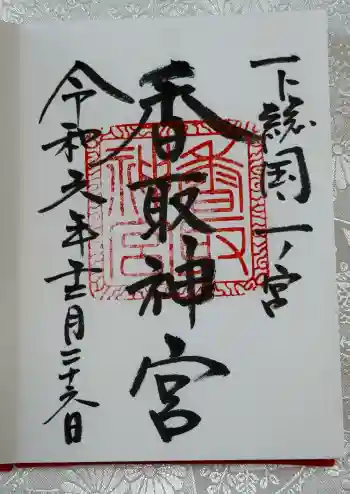 下総国一ノ宮
香取神宮
香取神宮
令和元年十二月二十六日